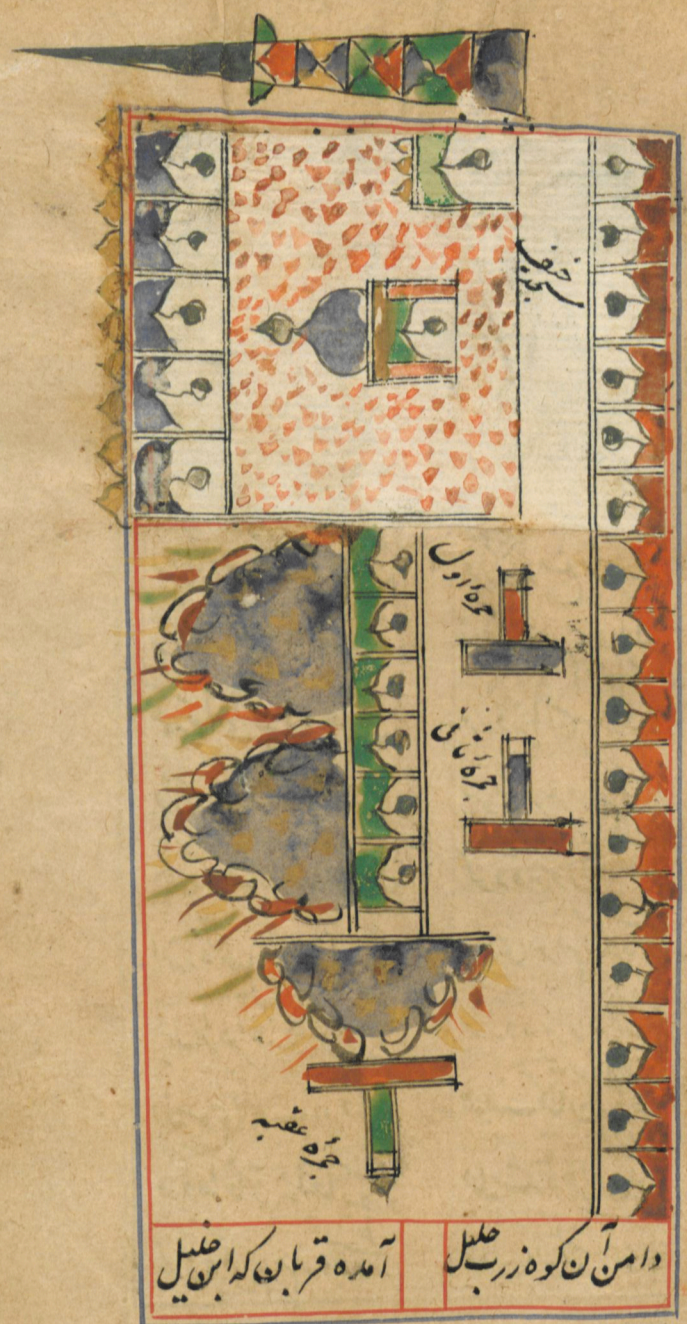 مسجد خیف
جمرهٔ اول
جمرهٔ ثانی
جمرهٔ عقبه
دامن آن کوه ز رب جلیل
آمده قربان که ابن خلیل